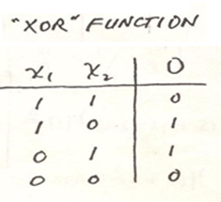 "XOR" FUNCTION
x₁ x₂ O
1 1 0
1 0 1
0 1 1
0 0 0